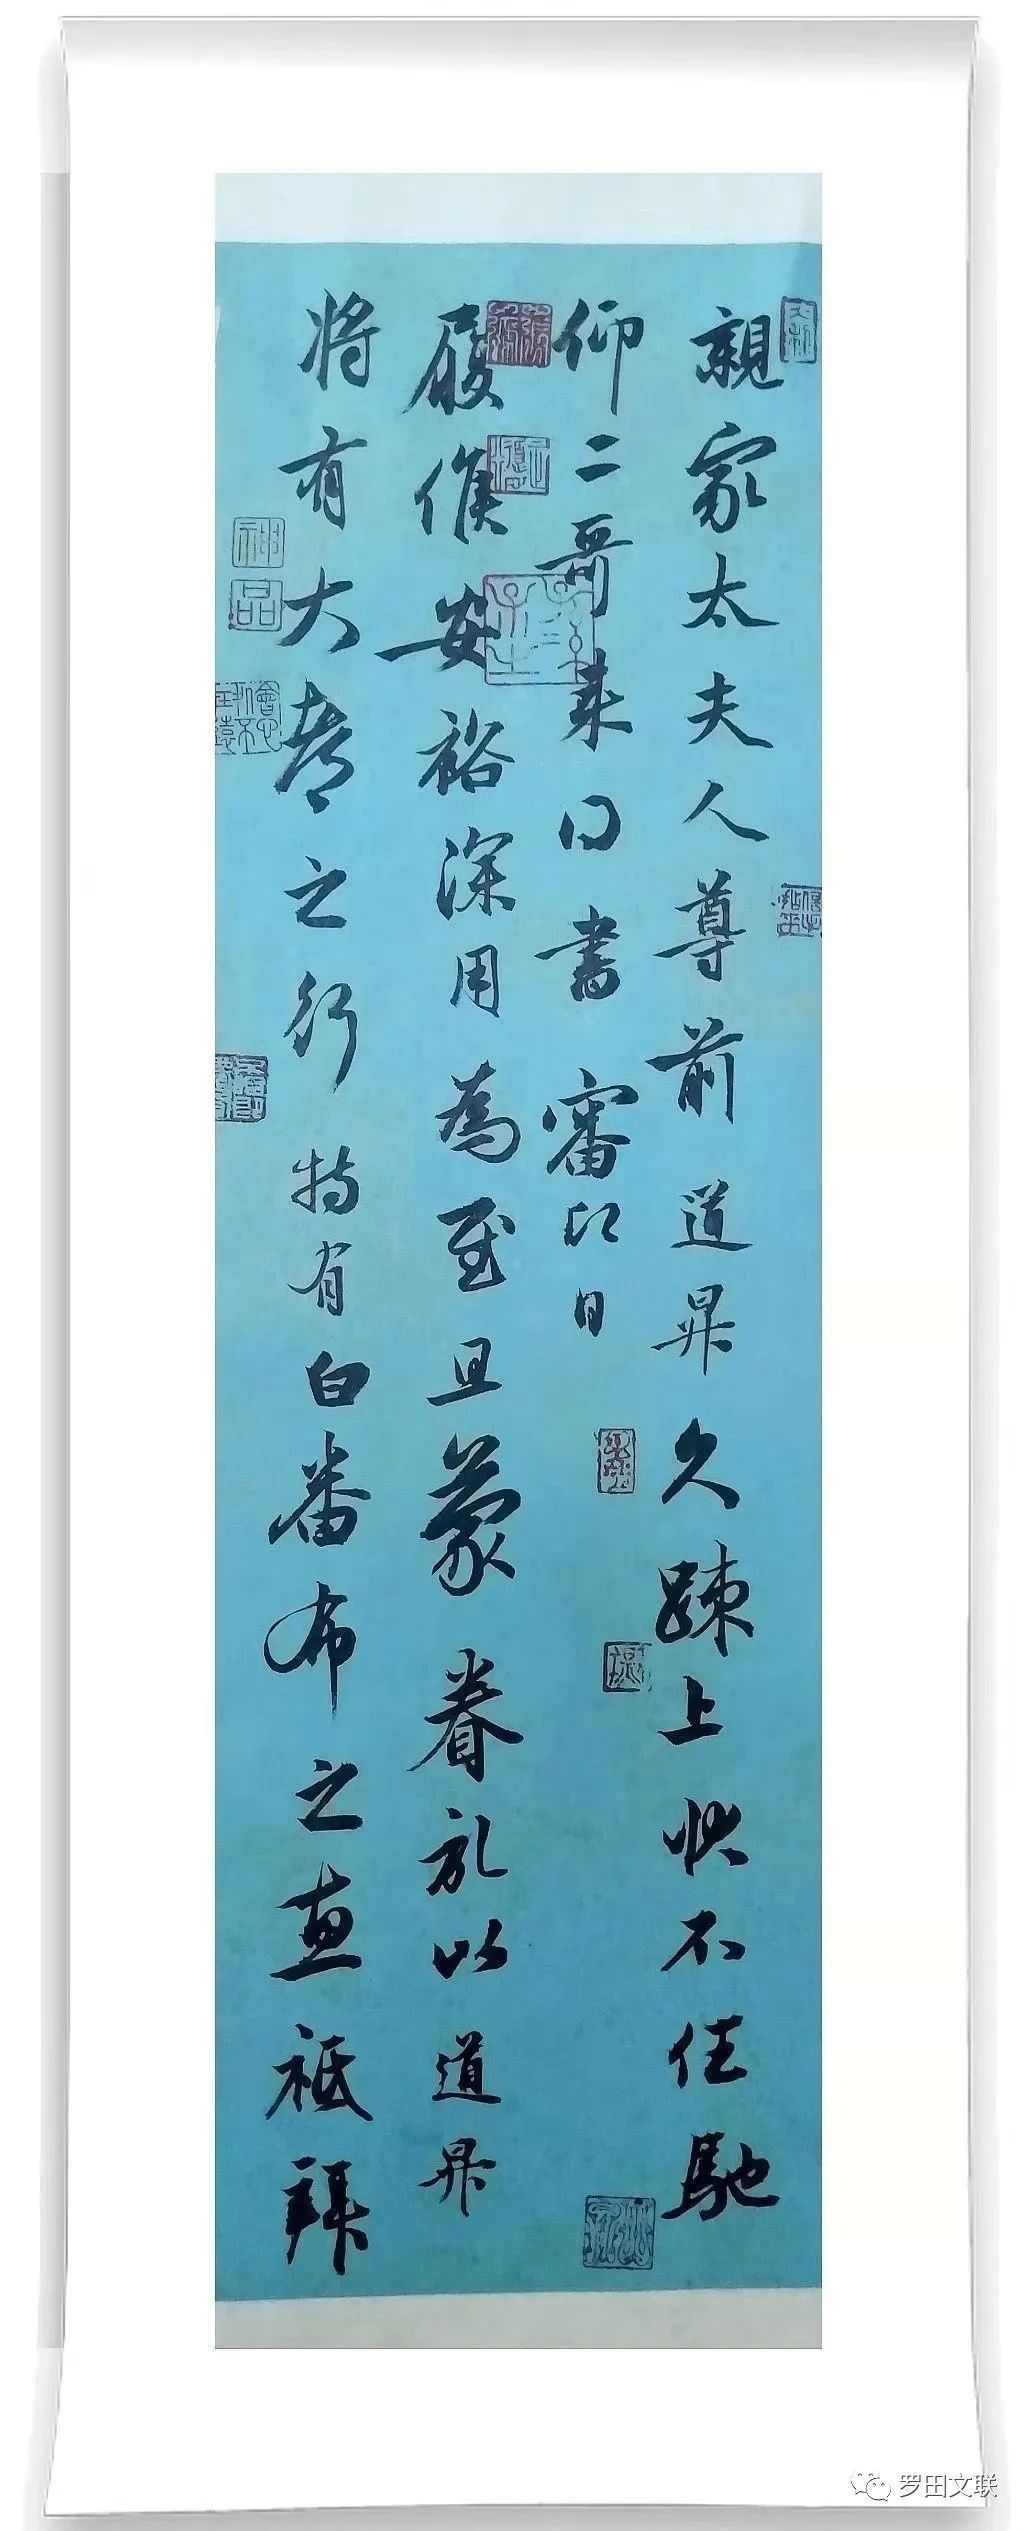 親家太夫人尊前道昇久疎上状不任馳
仰二哥来得書審即日
履候安裕深用為慰且蒙眷記以道昇
将有大都之行特有白番布之惠祗拜
神
品
罗田文联